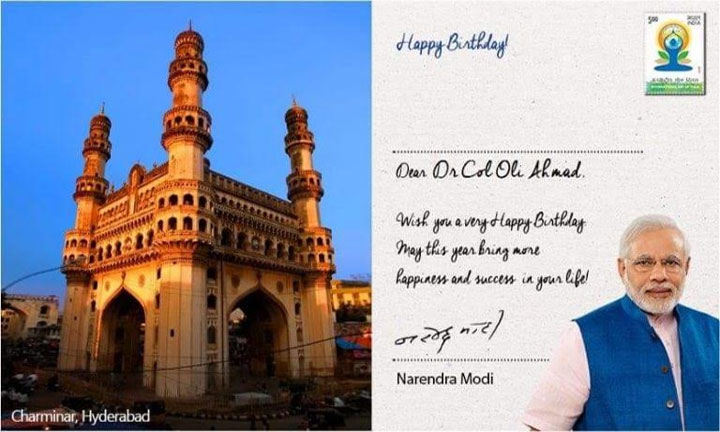 Happy Birthday!
5.00
भारत
INDIA
INTERNATIONAL DAY OF YOGA
Dear Dr Col Oli Ahmad,
Wish you a very Happy Birthday.
May this year bring more
happiness and success in your life!
नरेन्द्र मोदी
Narendra Modi
Charminar, Hyderabad